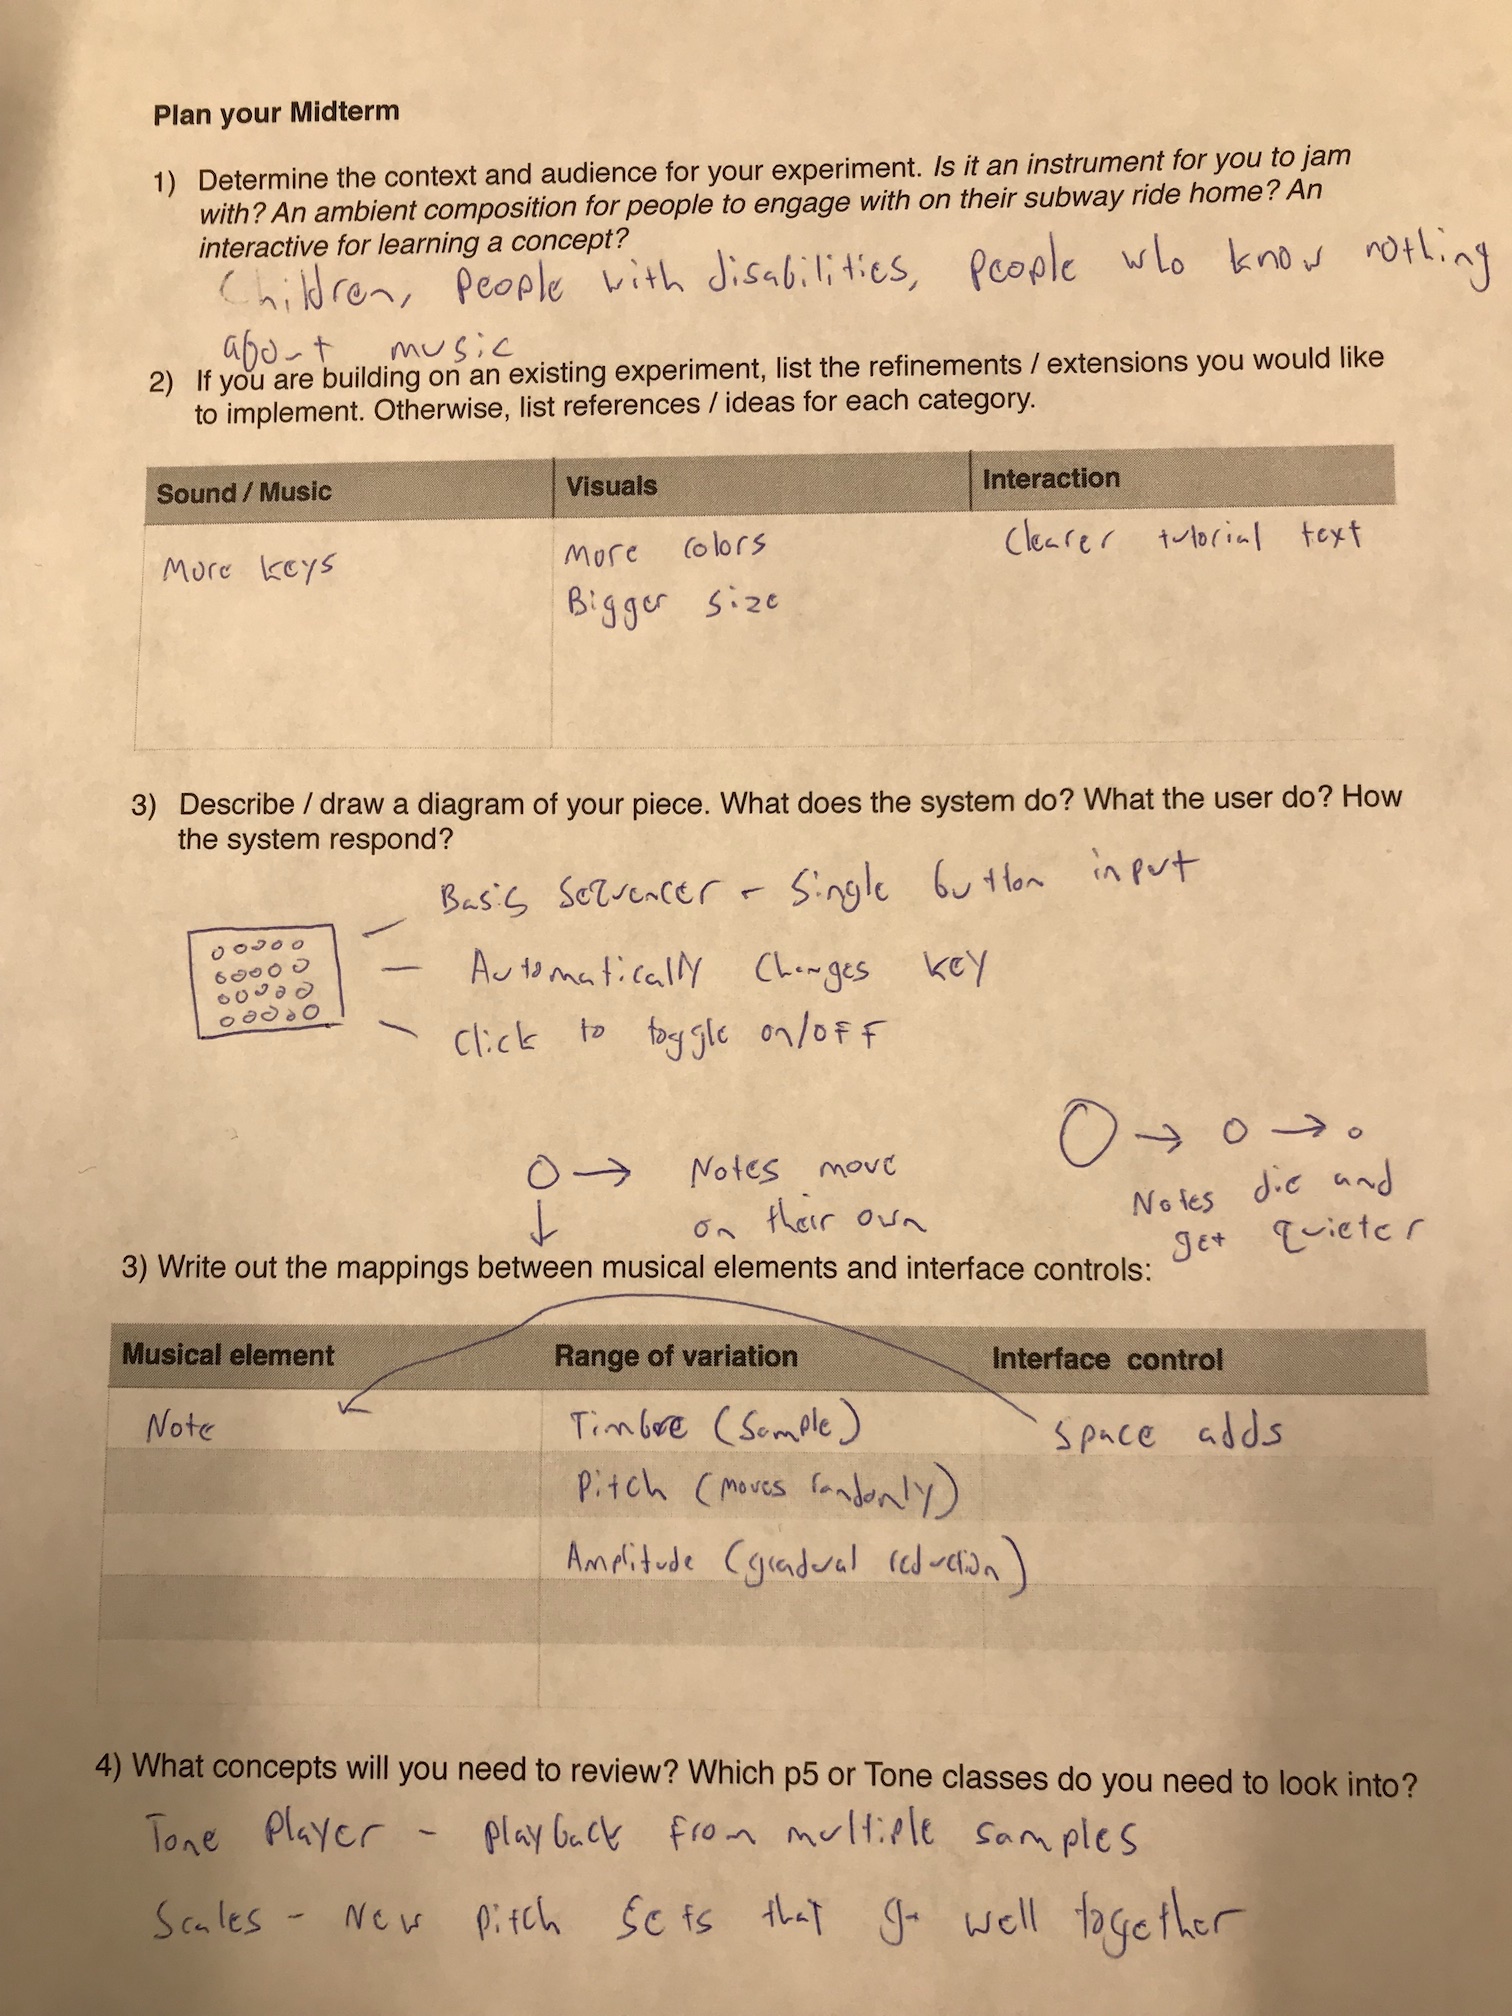 Plan your Midterm
1) Determine the context and audience for your experiment. Is it an instrument for you to jam
with? An ambient composition for people to engage with on their subway ride home? An
interactive for learning a concept?
Children, People with disabilities, People who know nothing
about music
2) If you are building on an existing experiment, list the refinements / extensions you would like
to implement. Otherwise, list references / ideas for each category.
Sound / Music Visuals Interaction
More keys
More colors
Bigger size
Clearer tutorial text
3) Describe / draw a diagram of your piece. What does the system do? What the user do? How
the system respond?
Basis Sequencer - Single button input
Automatically Changes key
Click to toggle on/off
Notes move
on their own
Notes die and
get quieter
3) Write out the mappings between musical elements and interface controls:
Musical element Range of variation Interface control
Note Timbre (Sample) Space adds
Pitch (moves randomly)
Amplitude (gradual reduction)
4) What concepts will you need to review? Which p5 or Tone classes do you need to look into?
Tone Player - playback from multiple samples
Scales - New pitch sets that go well together